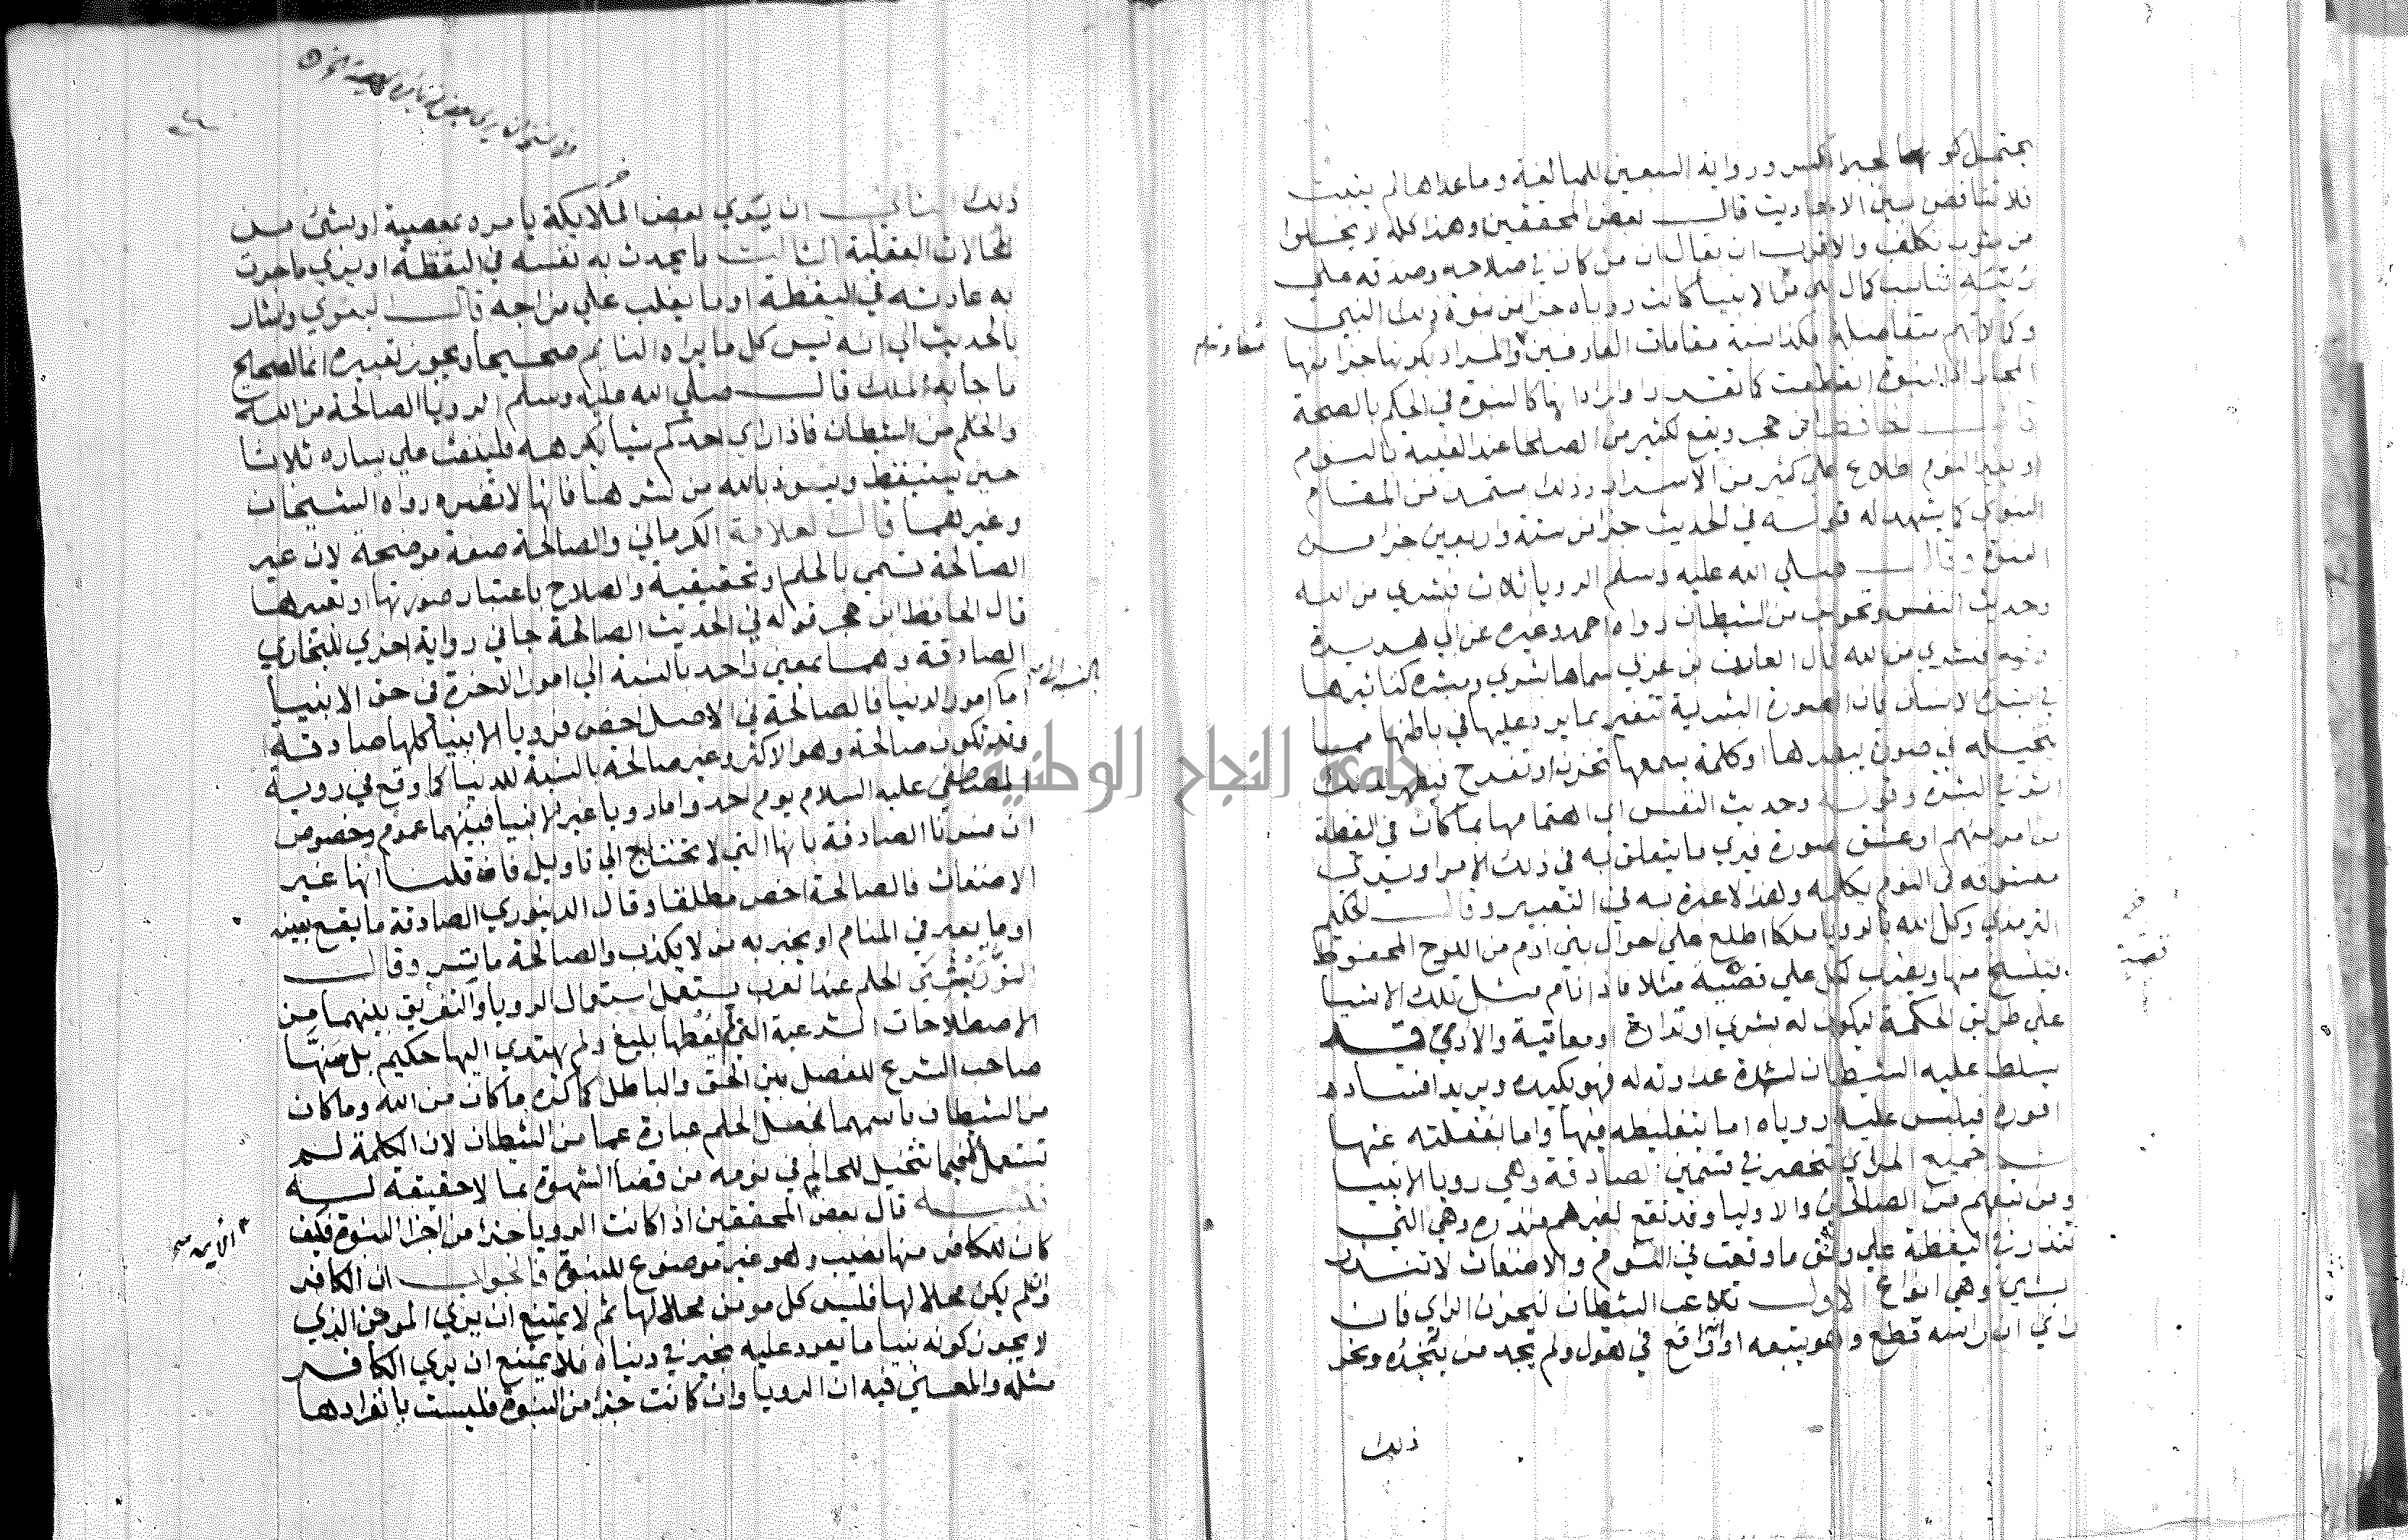 يحتمل كونها لجبر الكسر ورواية السبعين للمبالغة وما عداها لم يثبت
فلا تناقض بين الاحاديث قال بعض المحققين وهذا كله لا يخلوا
من شوب تكلف والاقرب ان يقال ان من كان في صلاحه وصدقه علي
رتبة تناسب كمال نبي من الانبيا كانت روياه جزا من نبوة ذلك النبي
وكمالاتهم متفاضلة فكذا نسبة مقامات العارفين والمراد بكونها جزا منها
المجاز اذ النبوة انقطعت كما تقدر او المراد انها كالنبوة في الحكم بالصحة
قال الحافظ ابن حجر ويقع لكثير من الصلحا عند الغيبة بالنوم
او بغير النوم اطلاع علي كثير من الاسرار وذلك مستمد من المقام
النبوي كما يشهد له قوله في الحديث جزا من ستة واربعين جزا من
النبوة وقال صلي الله عليه وسلم الرويا ثلاث فبشري من الله
وحديث النفس وتخويف من الشيطان رواه احمد وغيره عن ابي هريرة
وقوله فبشري من الله قال العارف بن عربي سماها بشري ومبشرة لتاثيرها
في بشرة الانسان فان الصورة البشرية تتغير بما يرد عليها في باطنها مما
يتخيله من صورة يبصرها او كلمة يسمعها تحزن او تفرح فيظهر لذلك
اثر في البشرة وقوله وحديث النفس اي اهتمامها بما كان في اليقظة
من امر يهم او عشق صورة فيري ما يتعلق به في ذلك الامر او يري
معشوقه في النوم يكلمه ولهذا لا عبرة به في التعبير وقال الحكيم
الترمذي وكل الله بالرويا ملكا اطلع علي احوال بني ادم من اللوح المحفوظ
فينسخ منها ويضرب لكل علي قصته مثلا فاذا نام مثل تلك الاشيا
علي طريق الحكمة ليكون له بشري او نذارة او معاتبة والادمي قد
يسلط عليه الشيطان لشدة عداوته له فهو يكيده ويريد افساد
اموره فيلبس عليه روياه اما بتغليطه فيها واما بغفلته عنها
ثم جميع المرائي تنحصر في قسمين الصادقة وهي رويا الانبيا
ومن تبعهم من الصالحين والاوليا وقد تقع لغيرهم بندره وهي التي
تنذر في اليقظة علي وفق ما وقعت في النوم والاضغاث لا تنذر
بشي وهي انواع الاول تلاعب الشيطان ليحزن الراي فان
راي ان راسه قطع وهو يتبعه او انه واقع في هول ولم يجد من ينجده ونحو
ذلك
متفاوتة
قصة
ذلك الثاني ان يري بعض الملايكة يامره بمعصية او بشئ من
المحالات العقلية الثالث ما يحدث به نفسه في اليقظة او يري ما جرت
به عادته في اليقظة او ما يغلب علي مزاجه قال البغوي واشار
بالحديث الي انه ليس كل ما يراه النايم صحيحا ويجوز تعبيره انما الصحيح
ما جا به الملك قال صلي الله عليه وسلم الرويا الصالحة من الله
والحلم من الشيطان فاذا راي احدكم شيا يكرهه فلينفث علي يساره ثلاثا
حين يستيقظ ويتعوذ بالله من شرها فانها لا تضره رواه الشيخان
وغيرهما قال العلامة الكرماني والصالحة صفة موضحة لان غير
الصالحة تسمي بالحلم او تحقيقية والصلاح باعتبار صورتها او تعبيرها
قال الحافظ ابن حجر قوله في الحديث الصالحة جا في رواية اخري للبخاري
الصادقة وهما بمعني واحد بالنسبة الي امور الاخرة في حق الانبيا
اما امور الدنيا فالصالحة في الاصل اخص فرويا الانبيا كلها صادقة
وقد تكون صالحة وهو الاكثر وغير صالحة بالنسبة للدنيا كما وقع في روية
المصطفي عليه السلام يوم احد واما رويا غير الانبيا فبينهما عموم وخصوص
ان فسرنا الصادقة بانها التي لا تحتاج الي تاويل فان قلنا انها غير
الاضغاث فالصالحة اخص مطلقا وقال الدينوري الصادقة ما يقع بعينه
او ما يعبر في المنام او يخبر به من لا يكذب والصالحة ما يسر وقال
التوربشتي الحلم عند العرب يستعمل استعمال الرويا والتفريق بينهما من
الاصطلاحات الشرعية التي لم يعطها بليغ ولم يهتدي اليها حكيم بل سنها
صاحب الشرع للفصل بين الحق والباطل كانه كره ما كان من الله وما كان
من الشيطان باسمهما فجعل الحلم عبارة عما من الشيطان لان الكلمة لم
تستعمل الا فيما يتخيل للحالم في نومه من قضا الشهوة بما لا حقيقة له
تنبيه قال بعض المحققين اذا كانت الرويا جزا من اجزا النبوة فكيف
كان للكافر منها نصيب وهو غير موضوع للنبوة فالجواب ان الكافر
وان لم يكن محلا لها فليس كل مومن محلا لها ثم لا يمتنع ان يري المومن الذي
لا يجوز كونه نبيا ما يعود عليه بخير في دنياه فلا يمتنع ان يري الكافر
مثله والمعني فيه ان الرويا وان كانت جزا من النبوة فليست بانفرادها
جامعة النجاح الوطنية